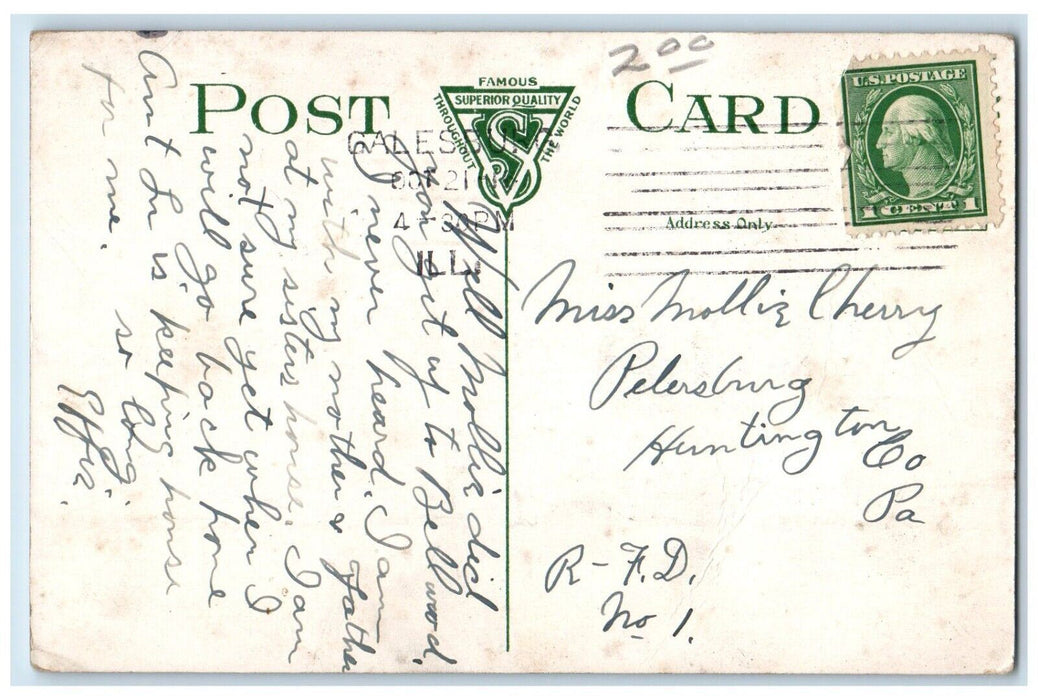 2 00
POST CARD
FAMOUS
SUPERIOR QUALITY
THROUGHOUT THE WORLD
U.S. POSTAGE
1 CENT 1
GALESBURG
OCT 21
4 - 30 PM
ILL.
Address Only
Well Mollie did
you get up to Bellwood.
I never heard. I am
with my mother & father
at my sisters house. I am
not sure yet when I
will go back home
Aunt Liz is keeping house
for me.
so long.
Effie.
Miss Mollie Cherry
Petersburg
Huntington Co
Pa
R-F.D.
No 1.